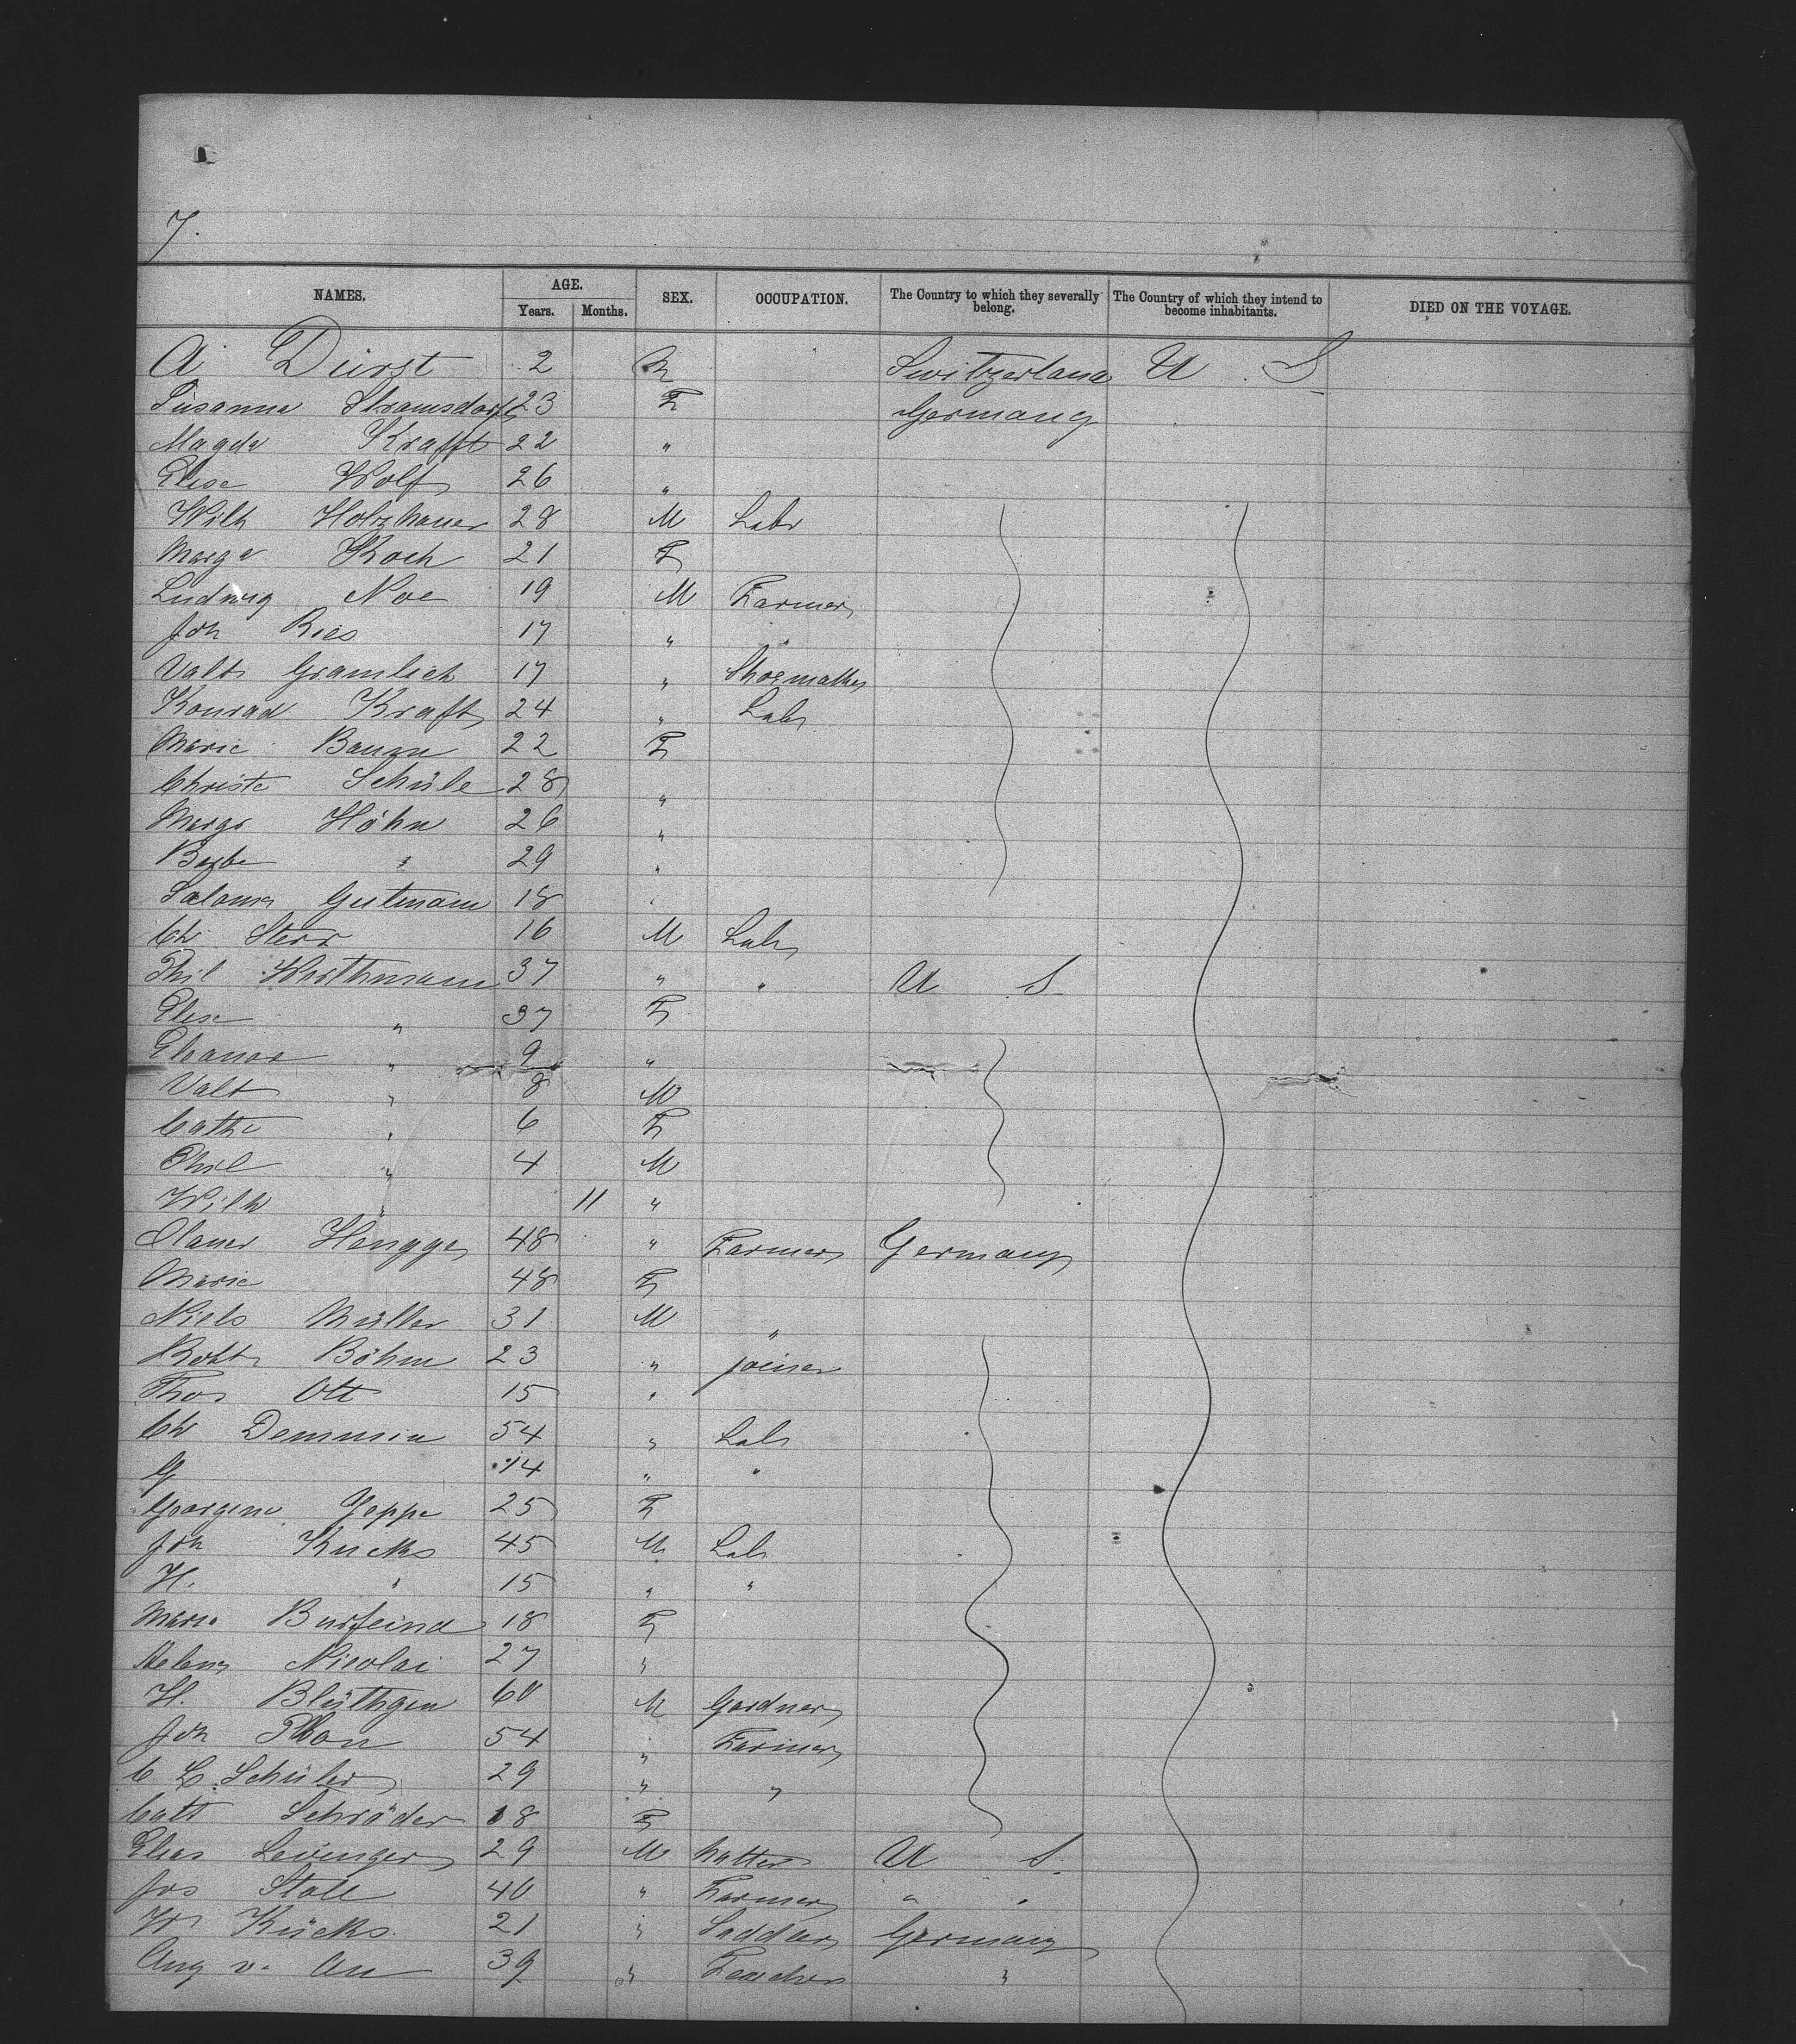 7.
NAMES. AGE. SEX. OCCUPATION. The Country to which they severally belong. The Country of which they intend to become inhabitants. DIED ON THE VOYAGE.
Years. Months.
A Dürst 2 M Switzerland U S
Susanna Stramsdorf 23 F Germany
Magda Krafft 22 "
Elise Wolf 26 "
Wilh Holzhauer 28 M Labr
Marga Koch 21 F
Ludwig Noe 19 M Farmer
Joh Ries 17 " "
Valt Gramlich 17 " Shoemaker
Konrad Kraft 24 " Labr
Marie Baum 22 F
Christe Schüle 28 "
Marga Höhn 26 "
Barba " 29 "
Saloma Gutmann 18 "
Ch Sterr 16 M Labr
Phil Worthmann 37 " " U S
Elise " 37 F
Eleanor " 9 "
Valt " 8 M
Cathe " 6 F
Phil " 4 M
Wilh " 11 "
Claus Hengge 48 " Farmer Germany
Marie 48 F
Niels Müller 31 M "
Robt Böhm 23 " joiner
Thos Ott 15 "
Ch Demmin 54 " Labr
G 14 " "
Georgine Jeppe 25 F
Joh Kucks 45 M Labr
H. " 15 " "
Marie Burfeind 18 F
Helena Nicolai 27 "
H. Blüthgen 60 M Gardner
Joh Thon 54 " Farmer
C L Schüler 29 " "
Cath Schröder 18 F
Elias Levinger 29 M hatter U S
Jos Stoll 40 " Farmer " "
Kücks 21 " Saddler Germany
Aug v. Au 39 " Teacher "